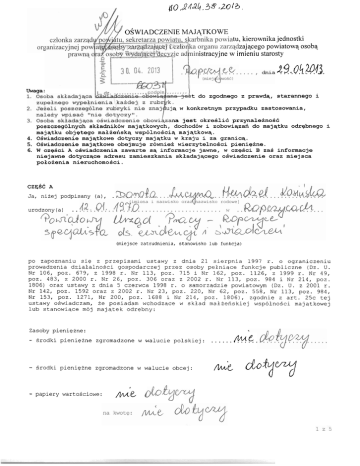 OŚWIADCZENIE MAJĄTKOWE
członka zarządu powiatu, sekretarza powiatu, skarbnika powiatu, kierownika jednostki
organizacyjnej powiatu, osoby zarządzającej i członka organu zarządzającego powiatową osobą
prawną oraz osoby wydającej decyzje administracyjne w imieniu starosty
30. 04. 2013
Ropczyce, dnia 29.04.2013
Uwaga:
1. Osoba składająca oświadczenie obowiązana jest do zgodnego z prawdą, starannego i
zupełnego wypełnienia każdej z rubryk.
2. Jeżeli poszczególne rubryki nie znajdują w konkretnym przypadku zastosowania,
należy wpisać "nie dotyczy".
3. Osoba składająca oświadczenie obowiązana jest określić przynależność
poszczególnych składników majątkowych, dochodów i zobowiązań do majątku odrębnego i
majątku objętego małżeńską wspólnością majątkową.
4. Oświadczenie majątkowe dotyczy majątku w kraju i za granicą.
5. Oświadczenie majątkowe obejmuje również wierzytelności pieniężne.
6. W części A oświadczenia zawarte są informacje jawne, w części B zaś informacje
niejawne dotyczące adresu zamieszkania składającego oświadczenie oraz miejsca
położenia nieruchomości.
CZĘŚĆ A
Ja, niżej podpisany (a), Dorota Lucyna Hendzel Kamińska
urodzony(a) 12.01.1970 Ropczycach
Powiatowy Urząd Pracy - Ropczyce
specjalista ds ewidencji i świadczeń
(miejsce zatrudnienia, stanowisko lub funkcja)
po zapoznaniu się z przepisami ustawy z dnia 21 sierpnia 1997 r. o ograniczeniu
prowadzenia działalności gospodarczej przez osoby pełniące funkcje publiczne (Dz. U.
Nr 106, poz. 679, z 1998 r. Nr 113, poz. 715 i Nr 162, poz. 1126, z 1999 r. Nr 49,
poz. 483, z 2000 r. Nr 26, poz. 306 oraz z 2002 r. Nr 113, poz. 984 i Nr 214, poz.
1806) oraz ustawy z dnia 5 czerwca 1998 r. o samorządzie powiatowym (Dz. U. z 2001 r.
Nr 142, poz. 1592 oraz z 2002 r. Nr 23, poz. 220, Nr 62, poz. 558, Nr 113, poz. 984,
Nr 153, poz. 1271, Nr 200, poz. 1688 i Nr 214, poz. 1806), zgodnie z art. 25c tej
ustawy oświadczam, że posiadam wchodzące w skład małżeńskiej wspólności majątkowej
lub stanowiące mój majątek odrębny:
Zasoby pieniężne:
- środki pieniężne zgromadzone w walucie polskiej: nie dotyczy
- środki pieniężne zgromadzone w walucie obcej: nie dotyczy
- papiery wartościowe: nie dotyczy
na kwotę: nie dotyczy